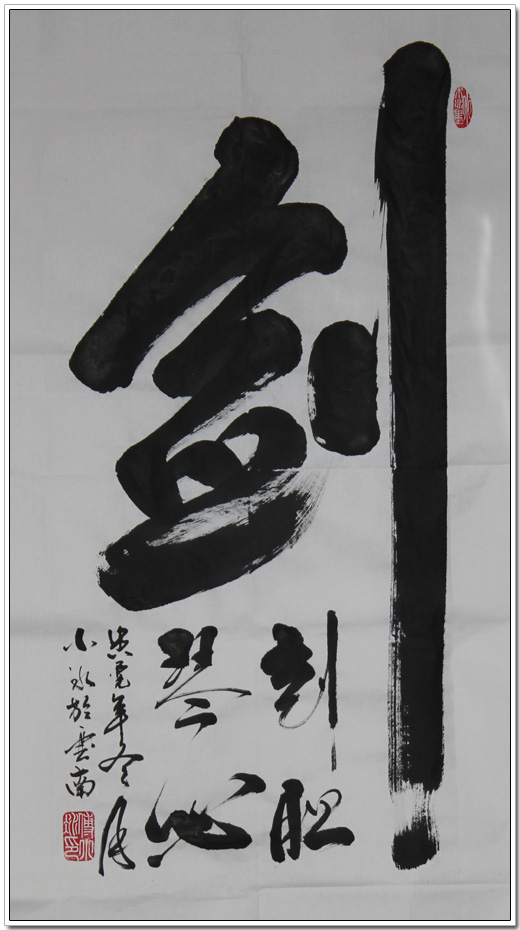 剑
剑胆
琴心
庚寅年冬月
小冰於雲南